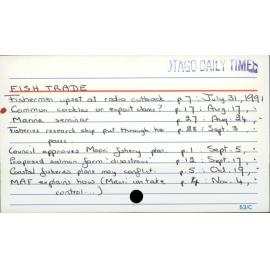 OTAGO DAILY TIMES
FISH TRADE
Fishermen upset at radio cutback p.7 : July 31, 1991
Common cockles or export clams? p.17 : Aug. 17, "
Marine seminar p.27 : Aug. 24, "
Fisheries research ship put through her p.28 : Sept. 3, "
paces.
Council approves Maori fishery plan. p.1 : Sept. 5, "
Proposed salmon farm 'disastrous' p.12 : Sept. 17, "
Coastal fisheries plans may conflict. p.5 : Oct. 19, "
MAF explains how (Maori intake p.4 : Nov. 4, "
control...)
53/C